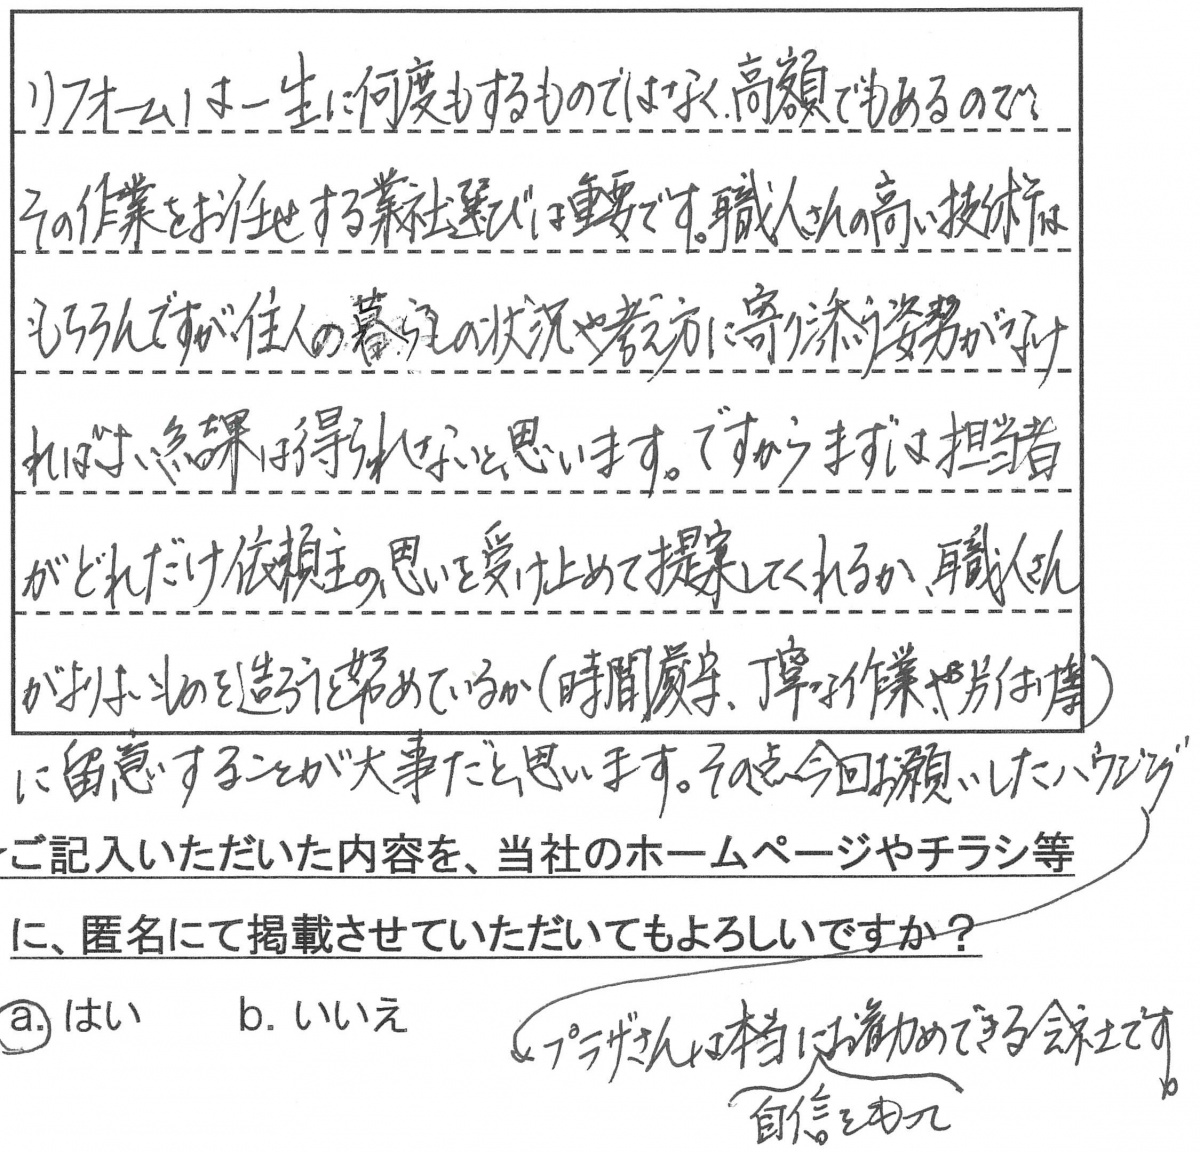 リフォームは一生に何度もするものではなく、高額でもあるので、
その作業をお任せする業社選びは重要です。職人さんの高い技術は
もちろんですが、住人の暮らしの状況や考え方に寄り添う姿勢がなけ
ればよい結果は得られないと思います。ですからまずは担当者
がどれだけ依頼主の思いを受け止めて提案してくれるか、職人さん
がよりよいものを造ろうと努めているか(時間厳守、丁寧な作業や片付け等)
に留意することが大事だと思います。その点今回お願いしたハウジング
ご記入いただいた内容を、当社のホームページやチラシ等
に、匿名にて掲載させていただいてもよろしいですか？
a. はい b. いいえ
プラザさんは本当にお勧めできる会社です。
自信をもって